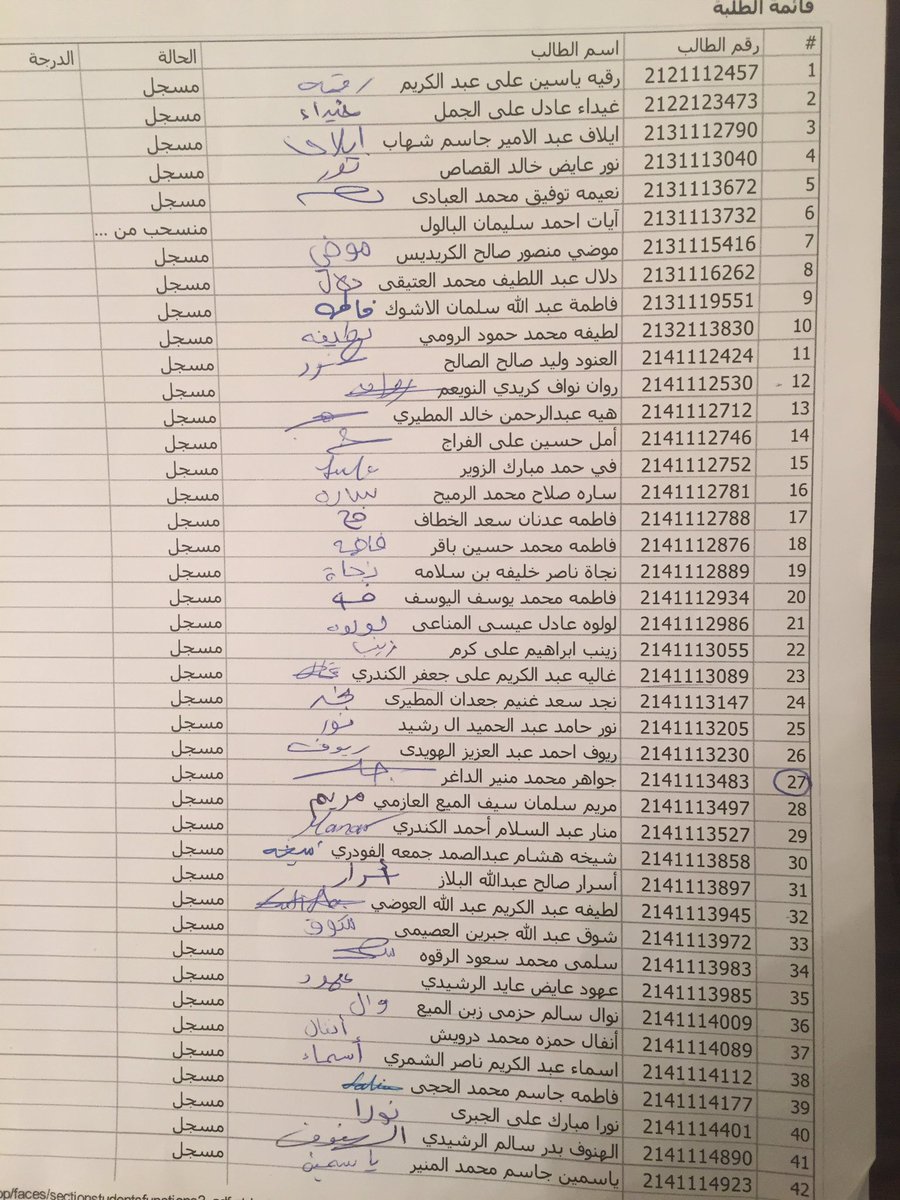 قائمة الطلبة
# رقم الطالب اسم الطالب الحالة الدرجة
1 2121112457 رقيه ياسين على عبد الكريم رقيه مسجل
2 2122123473 غيداء عادل على الجمل غيداء مسجل
3 2131112790 ايلاف عبد الامير جاسم شهاب ايلاف مسجل
4 2131113040 نور عايض خالد القصاص نور مسجل
5 2131113672 نعيمه توفيق محمد العبادى مسجل
6 2131113732 آيات احمد سليمان البالول منسحب من ...
7 2131115416 موضي منصور صالح الكريديس موضي مسجل
8 2131116262 دلال عبد اللطيف محمد العتيقى دلال مسجل
9 2131119551 فاطمة عبد الله سلمان الاشوك فاطمه مسجل
10 2132113830 لطيفه محمد حمود الرومي لطيفه مسجل
11 2141112424 العنود وليد صالح الصالح عنود مسجل
12 2141112530 روان نواف كريدي النويعم روان مسجل
13 2141112712 هيه عبدالرحمن خالد المطيري مسجل
14 2141112746 أمل حسين على الفراج مسجل
15 2141112752 في حمد مبارك الزوير مسجل
16 2141112781 ساره صلاح محمد الرميح ساره مسجل
17 2141112788 فاطمه عدنان سعد الخطاف مسجل
18 2141112876 فاطمه محمد حسين باقر فاطمه مسجل
19 2141112889 نجاة ناصر خليفه بن سلامه نجاة مسجل
20 2141112934 فاطمه محمد يوسف اليوسف مسجل
21 2141112986 لولوه عادل عيسى المناعى لولوه مسجل
22 2141113055 زينب ابراهيم على كرم زينب مسجل
23 2141113089 غاليه عبد الكريم على جعفر الكندري مسجل
24 2141113147 نجد سعد غنيم جعدان المطيرى نجد مسجل
25 2141113205 نور حامد عبد الحميد ال رشيد نور مسجل
26 2141113230 ريوف احمد عبد العزيز الهويدى ريوف مسجل
27 2141113483 جواهر محمد منير الداغر مسجل
28 2141113497 مريم سلمان سيف الميع العازمي مريم مسجل
29 2141113527 منار عبد السلام أحمد الكندري Manar مسجل
30 2141113858 شيخه هشام عبدالصمد جمعه الفودري شيخه مسجل
31 2141113897 أسرار صالح عبدالله البلاز أسرار مسجل
32 2141113945 لطيفه عبد الكريم عبد الله العوضي مسجل
33 2141113972 شوق عبد الله جبرين العصيمى شوق مسجل
34 2141113983 سلمى محمد سعود الرقوه مسجل
35 2141113985 عهود عايض عايد الرشيدي عهود مسجل
36 2141114009 نوال سالم حزمى زبن الميع نوال مسجل
37 2141114089 أنفال حمزه محمد درويش أنفال مسجل
38 2141114112 اسماء عبد الكريم ناصر الشمري أسماء مسجل
39 2141114177 فاطمه جاسم محمد الحجى مسجل
40 2141114401 نورا مبارك على الجبرى نورا مسجل
41 2141114890 الهنوف بدر سالم الرشيدي الهنوف مسجل
42 2141114923 ياسمين جاسم محمد المنير ياسمين